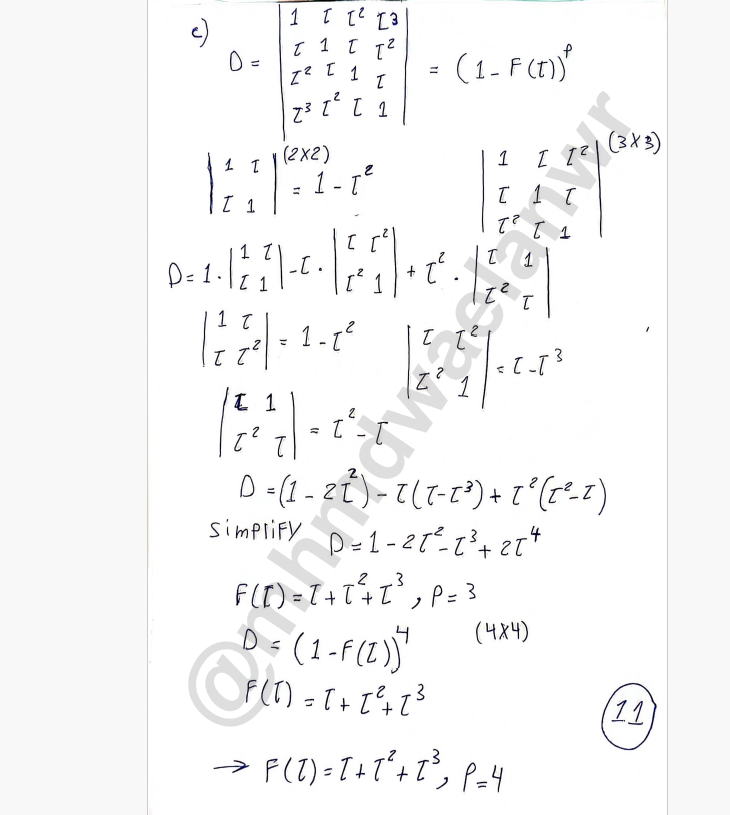 c)
D = | 1 τ τ² τ³ |
| τ 1 τ τ² |
| τ² τ 1 τ |
| τ³ τ² τ 1 | = (1 - F(τ))ᵖ
| 1 τ |
| τ 1 | (2x2) = 1 - τ²
| 1 τ τ² |
| τ 1 τ |
| τ² τ 1 | (3x3)
D = 1 · | 1 τ |
| τ 1 | - τ · | τ τ² |
| τ² 1 | + τ² · | τ 1 |
| τ² τ |
| 1 τ |
| τ τ² | = 1 - τ²
| τ τ² |
| τ² 1 | = τ - τ³
| τ 1 |
| τ² τ | = τ² - τ
D = (1 - 2τ²) - τ(τ-τ³) + τ²(τ²-τ)
simplify D = 1 - 2τ² - τ³ + 2τ⁴
F(τ) = τ + τ² + τ³ , P = 3
D = (1 - F(τ))⁴ (4x4)
F(τ) = τ + τ² + τ³
11
→ F(τ) = τ + τ² + τ³, P = 4
@mhmdwaelanwr